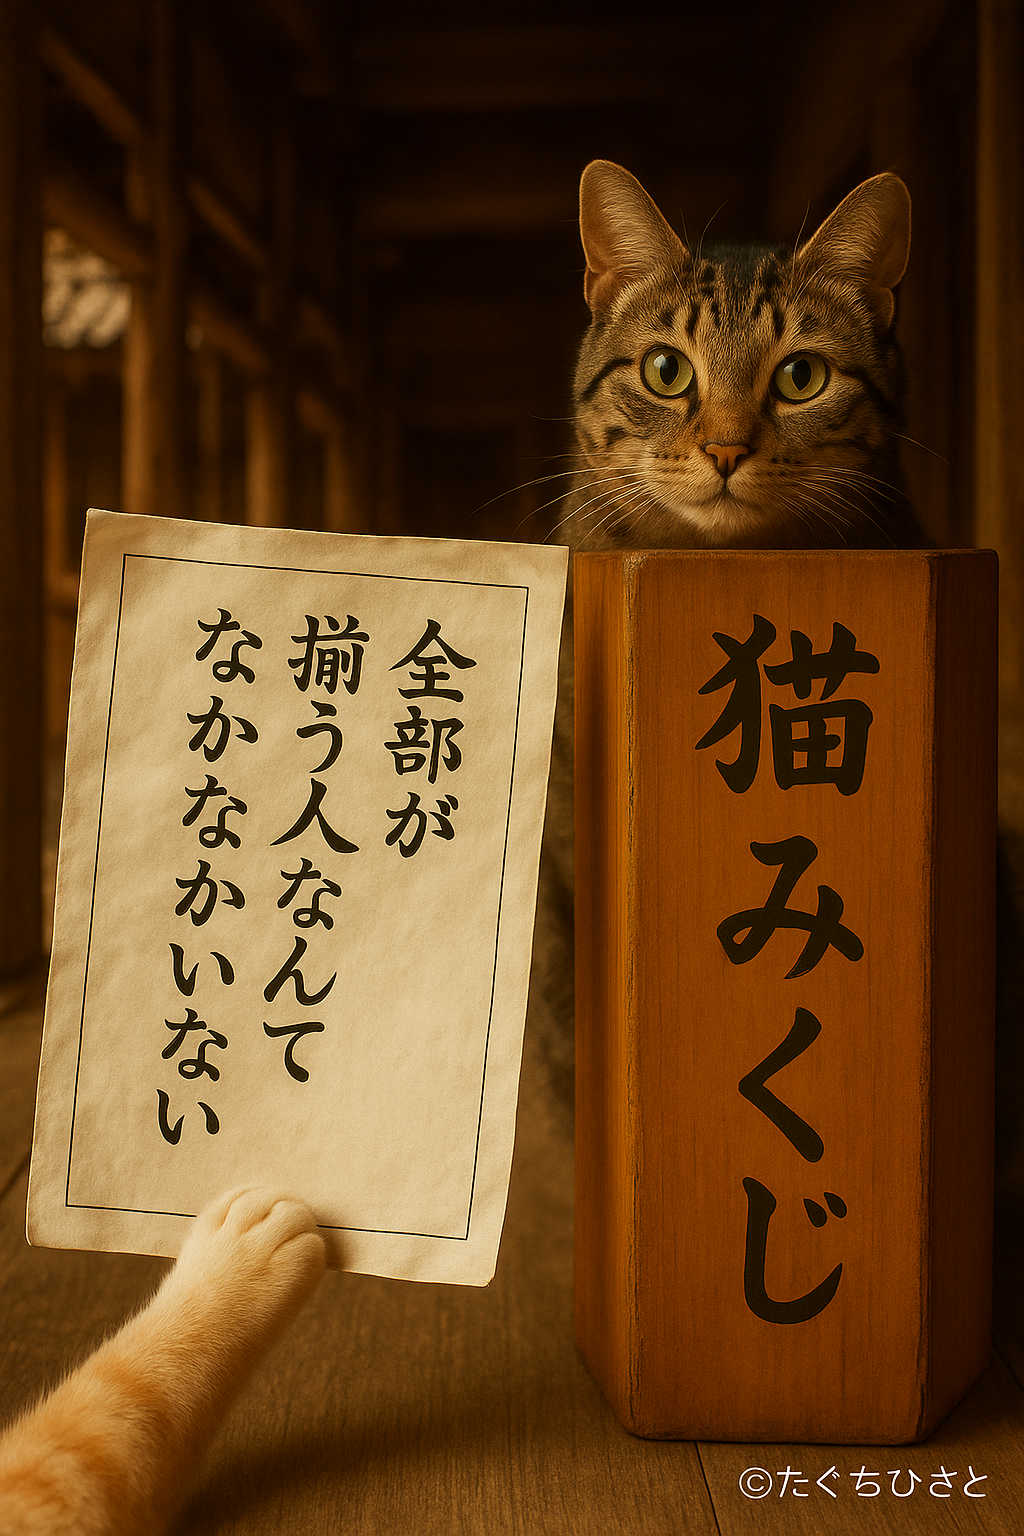 全部が
揃う人なんて
なかなかいない
猫みくじ
©たぐちひさと